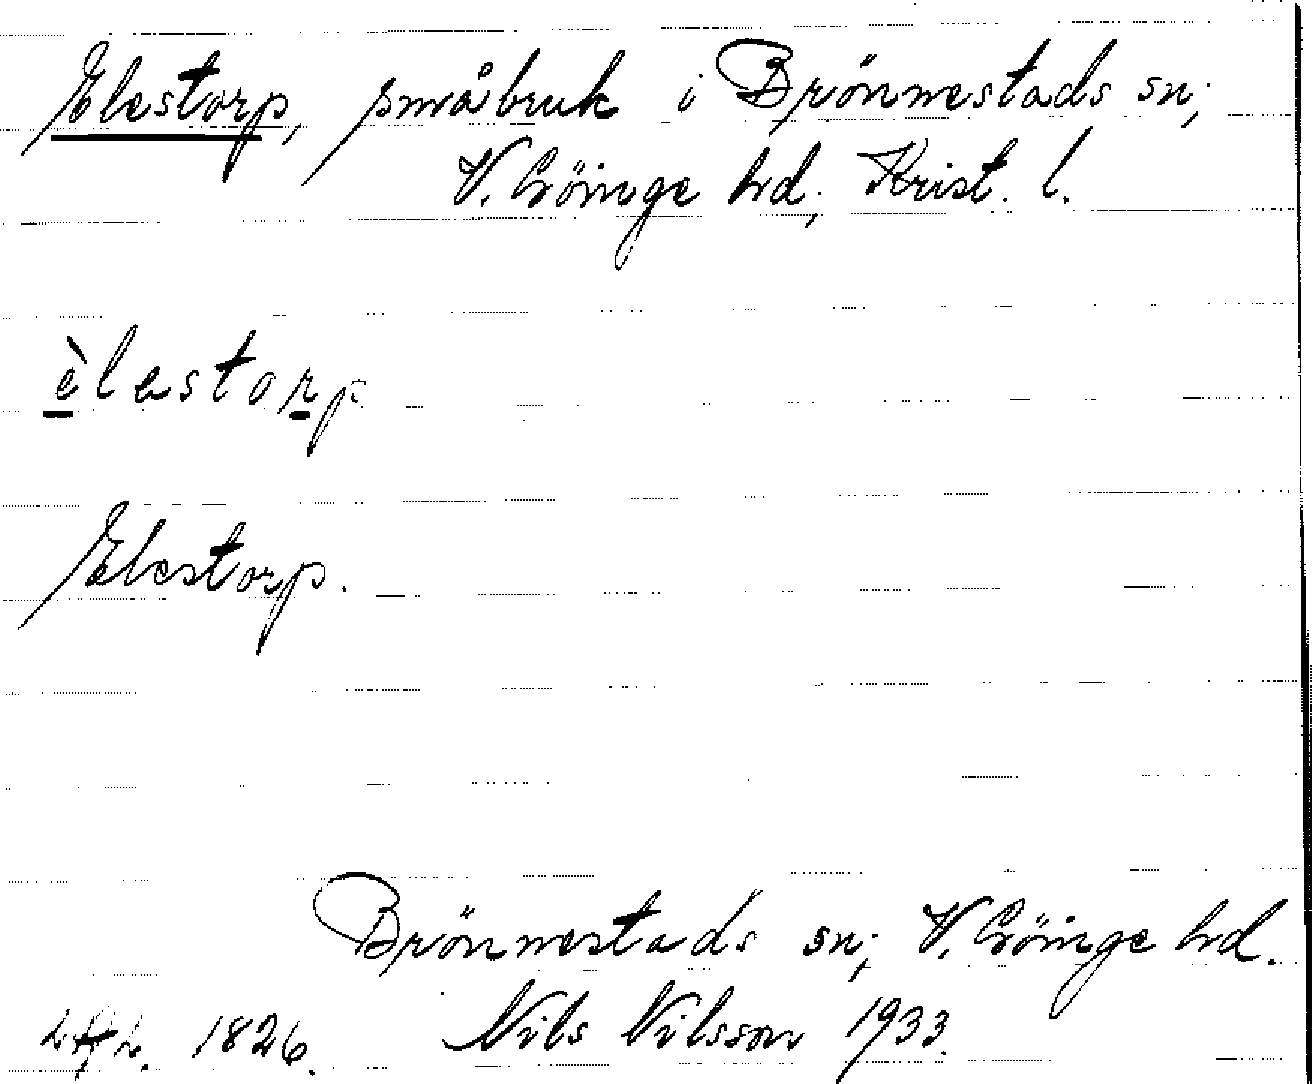 Elestorp, småbruk i Brönnestads sn;
V. Göinge hd; Krist. l.
èlestorp
Elestorp.
Brönnestads sn; V. Göinge hd.
1826. Nils Nilsson 1933.